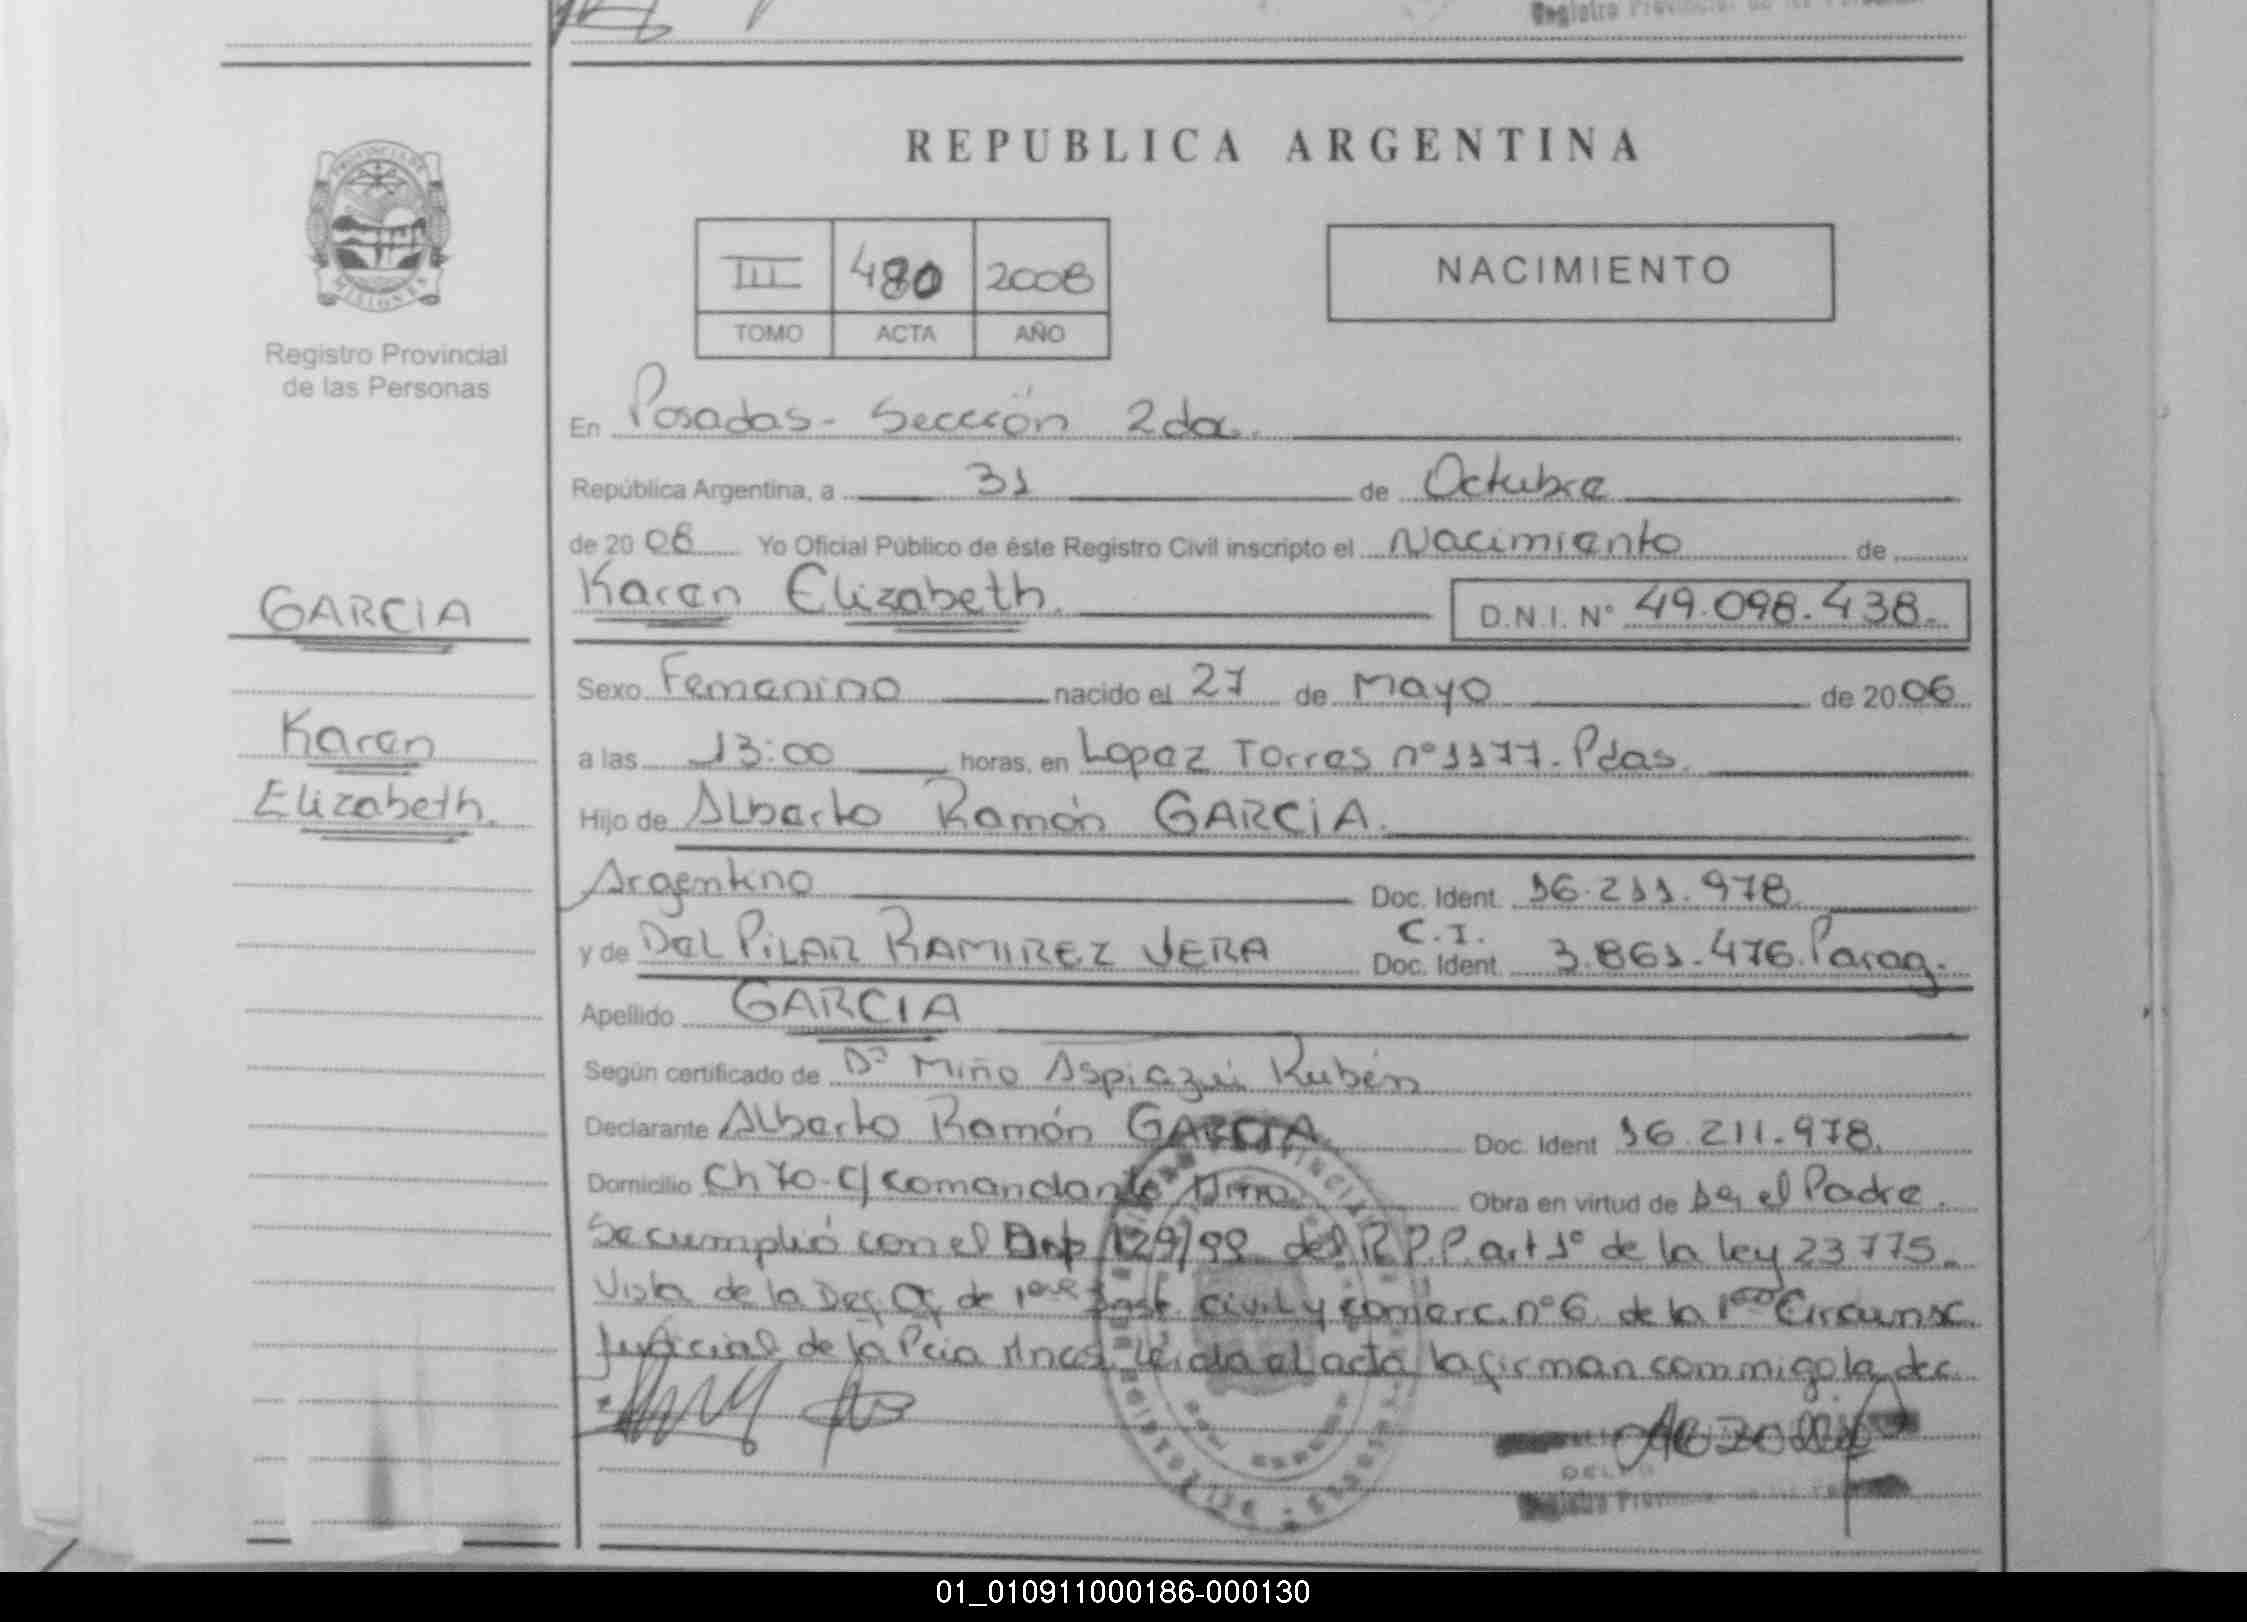 Registro Provincial de las Personas
PROVINCIA DE
MISIONES
Registro Provincial
de las Personas
REPUBLICA ARGENTINA
III 480 2008
TOMO ACTA AÑO
NACIMIENTO
En Posadas - Sección 2da.
República Argentina, a 31 de Octubre
de 20 08 Yo Oficial Público de éste Registro Civil inscripto el Nacimiento de
GARCIA
Karen Elizabeth. D.N.I. N° 49.098.438.
Sexo Femenino nacido el 27 de Mayo de 20 06
Karen
a las 13:00 horas, en Lopez Torres n° 1177. Pdas.
Elizabeth.
Hijo de Alberto Ramón GARCIA.
Argentino Doc. Ident. 16.211.978
y de Del PILAR RAMIREZ VERA C.I. Doc. Ident 3.861.476 Parag.
Apellido GARCIA
Según certificado de Dr Miño Aspiazú Rubén
Declarante Alberto Ramón GARCIA. Doc. Ident 16.211.978.
Domicilio Ch 70 - c/ comandante Miño Obra en virtud de Ser el Padre.
Se cumplió con el Disp 129/99 del R.P.P. art 1° de la ley 23775.
Vista de la Def. Of. de 1era Inst. civil y comerc. n° 6 de la 1era Circunsc.
Judicial de la Pcia Mnes. Leida el acta la firman conmigo la dec.
Registro Provincial de las Personas
01_010911000186-000130